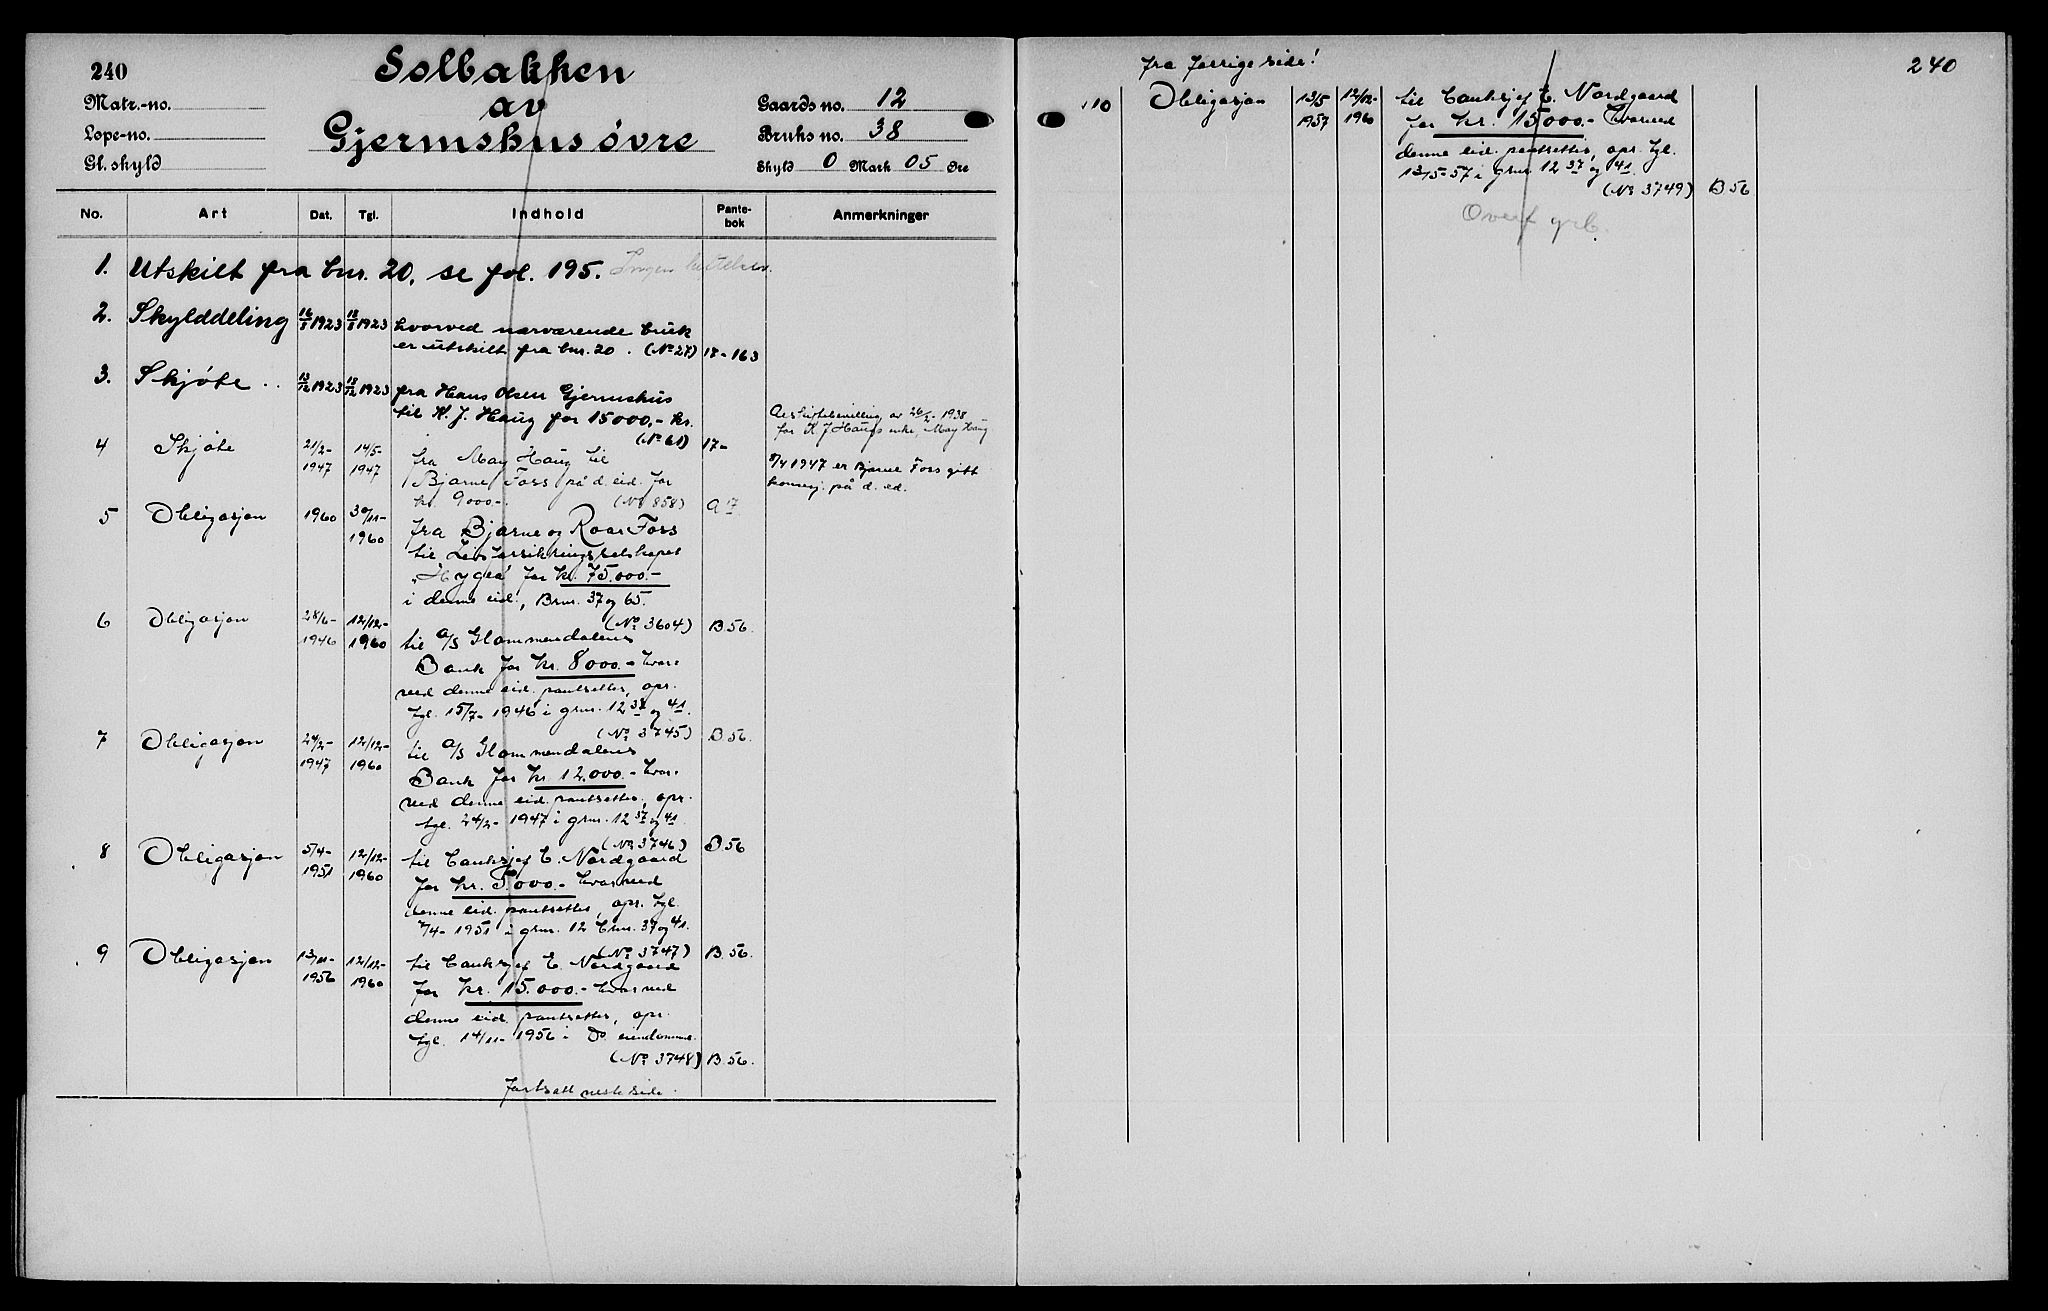 240
Solbakken
av
Gjermshus øvre
Matr.-no.
Løpe-no.
Gl. skyld
Gaards no. 12
Bruks no. 38
Skyld 0 Mark 05 Øre
No. Art Dat. Tgl. Indhold Pante-bok Anmerkninger
1. Utskilt fra bnr. 20, se fol. 195. Ingen heftelser.
2. Skylddeling 16/5 1923 18/5 1923 hvorved nærværende bruk
er utskilt fra bnr. 20. (No 27) 17-163
3. Skjøte 13/12 1923 18/12 1923 fra Hans Olsen Gjermshus
til K. J. Haug for 15000,- kr.
(No 61) 17-
Uskiftebevilling av 26/2-1938
for K J Haugs enke, May Haug
4 Skjøte 21/2-1947 14/5-1947 fra May Haug til
Bjarne Foss på d. eid. for
kr. 9000.- (No 858) A 17
1947 er Bjarne Foss gitt
konsesj. på d. ed.
5 Obligasjon 1960 30/11-1960 fra Bjarne og Roar Foss
til Livsforsikringsselskapet
"Hygea" for kr. 75.000.-
i denne eid., Brnr. 37 og 65.
(No 3604) B.56.
6 Obligasjon 28/6-1946 12/12-1960 til A/S Glommendalens
Bank for kr. 8000.- hvor-
ved denne eid. pantsettes, opr.
tgl. 15/7-1946 i grnr. 12 37 og 41.
(No 3745) B 56.
7 Obligasjon 24/2-1947 12/12-1960 til A/S Glommendalens
Bank for kr. 12.000.- hvor-
ved denne eid. pantsettes, opr.
tgl. 24/2-1947 i grnr. 12 37 og 41.
(No 3746) B 56
8 Obligasjon 5/4-1951 12/12-1960 til banksjef E. Nordgaard
for kr. 5.000.- hvorved
denne eid. pantsettes, opr. tgl.
7/4-1951 i grnr. 12 brnr. 37 og 41.
(No 3747) B.56.
9 Obligasjon 13/11-1956 12/12-1960 til banksjef E. Nordgaard
for kr. 15.000.- hvorved
denne eid. pantsettes, opr.
tgl. 14/11-1956 i do eiendomme.
(No 3748) B.56.
fortsatt neste side.
fra forrige side!
240
10 Obligasjon 13/5 1957 12/12-1960 til banksjef E. Nordgaard
for kr. 15000.- hvorved
denne eid. pantsettes, opr. tgl.
13/5-57 i grnr. 12 37 og 41.
(No 3749) B 56
Overf grb.